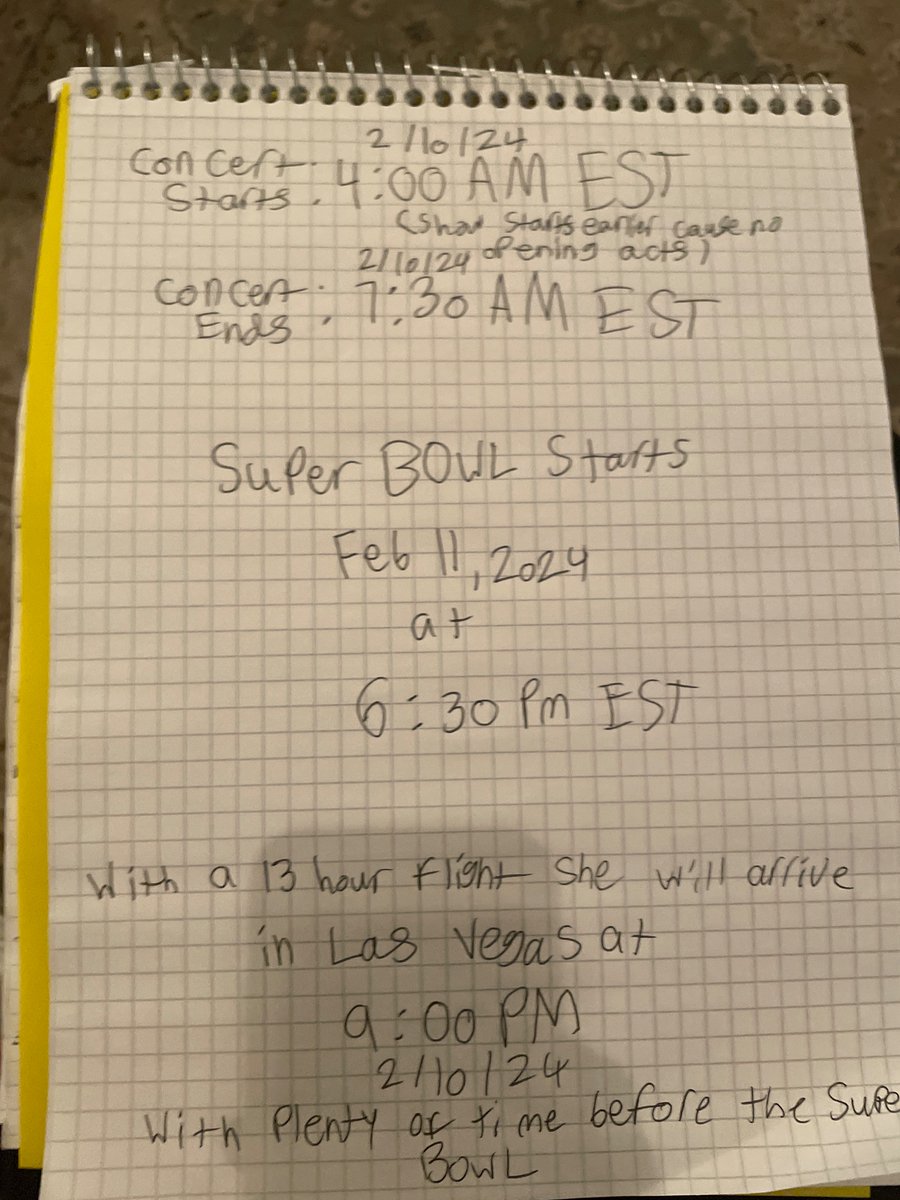 2/10/24
Concert Starts: 4:00 AM EST
(Show starts earlier cause no opening acts)
2/10/24
Concert Ends: 7:30 AM EST
Super BOWL Starts
Feb 11, 2024
at
6:30 Pm EST
With a 13 hour flight she will arrive
in Las Vegas at
9:00 PM
2/10/24
With Plenty of time before the Supe
BOWL